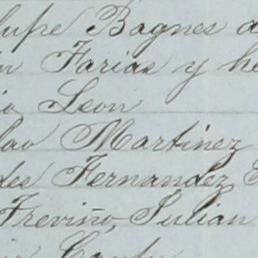 lupe Bagnes d
n Farias y he
io Leon
lao Martinez
des Fernandez
Treviño, Julian
Cantu